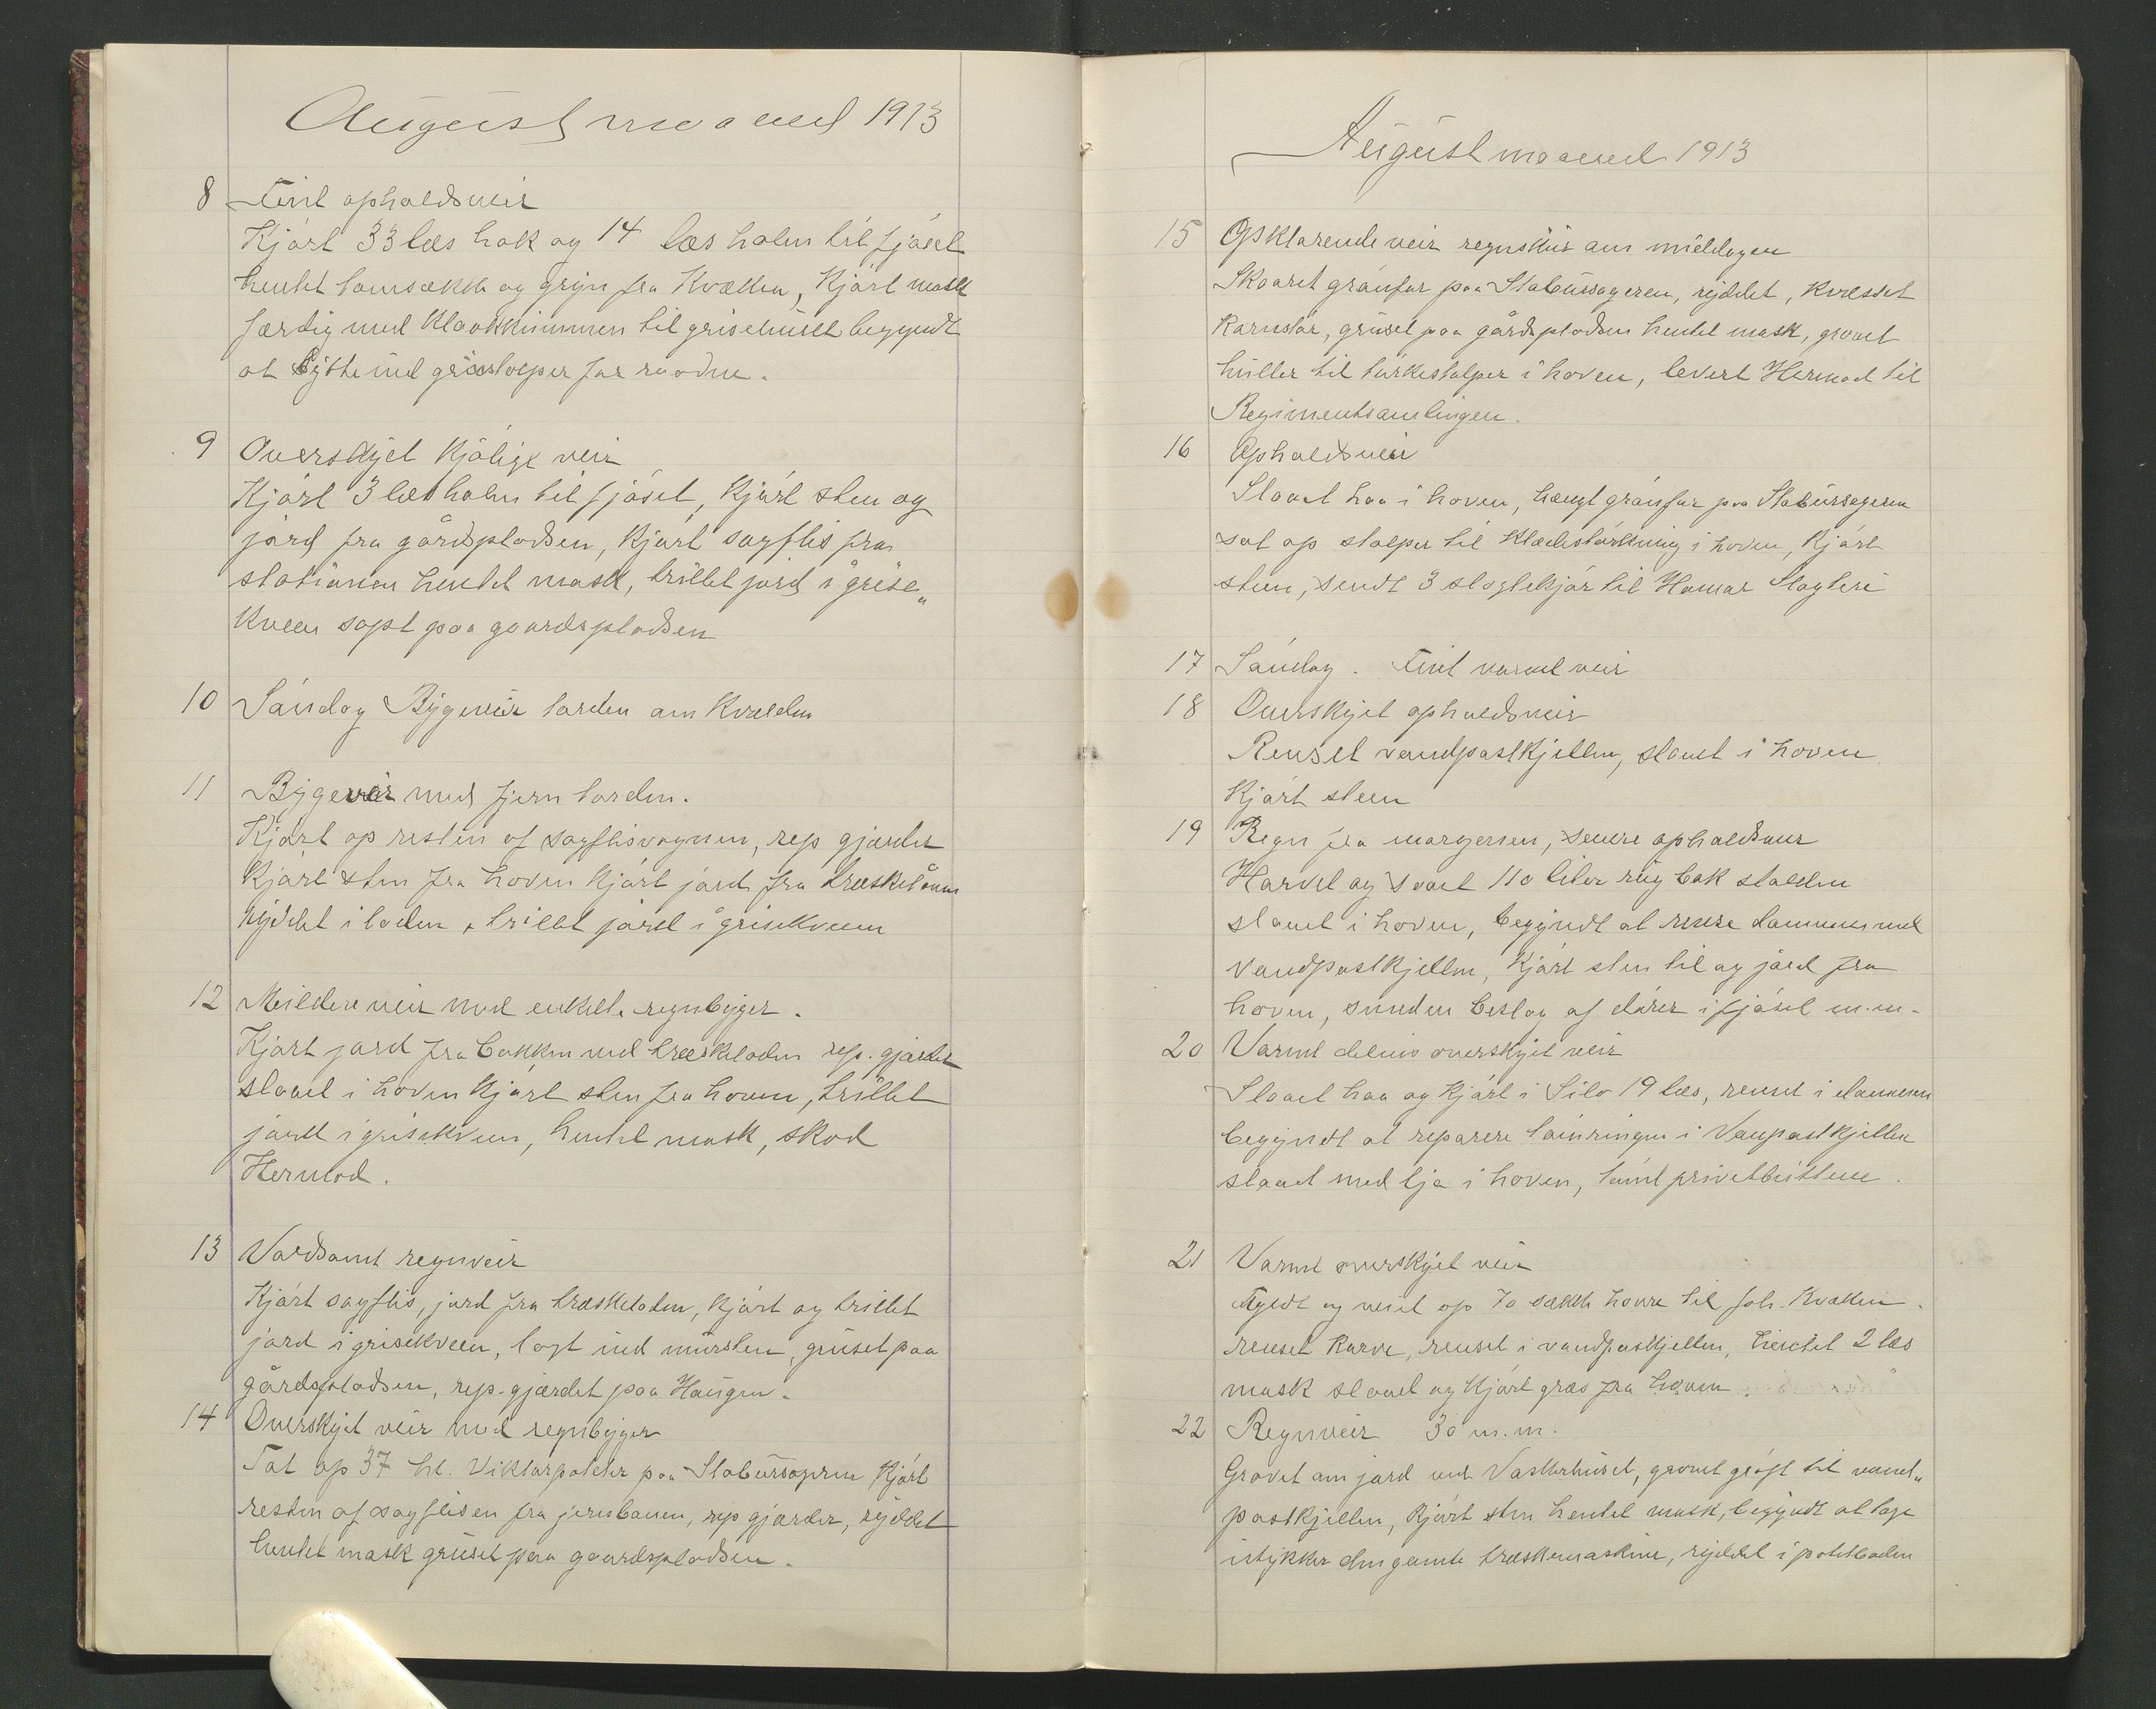 August maaned 1913
8 Fint opholdsveir
Kjørt 33 læs hak og 14 læs halm til fjøset
hentet tomsække og gryn fra Kvækken, Kjørt mask
færdig med Klaakkummen til grisehuset begyndt
at bytte ind
9 Overskyet Kjølig veir
Kjørt 3 læs halm til fjøset, Kjørt sten og
jord fra gårdspladsen, Kjørt sagflis fra
stationen hentet mask, trillet jord i grise„
Kveen sopt paa gaardspladsen
10 Søndag Bygeveir torden om Kvælden
11 Bygeveir med fjern torden.
Kjørt op resten af sagflisvognen, rep gjærder
Kjørt sten fra hoven Kjørt jord fra træskelåven
ryddet i laden, trillet jord i grisekveen
12 Mildere veir med enkelte regnbyger.
Kjørt jord fra bakken ved træskeladen rep. gjærdet
slaaet i hoven Kjørt sten fra hoven, trillet
jord i grisekveen, hentet mask, skod
Hermod.
13 Vaadsomt regnveir
Kjørt sagflis, jord fra træskeladen, Kjørt og trillet
jord i grisekveen, lagt ind mursten, gruset paa
gårdspladsen, rep. gjærdet paa Haugen.
14 Overskyet veir med regnbyger
Tat op 37 hl. Viktorpoteter paa Stabursageren Kjørt
resten af sagflisen fra jernbanen, rep gjærder, ryddet
hentet mask gruset paa gaardspladsen.
August maaned 1913
15 Opklarende veir regnskur om middagen
Skaaret grønfor paa Stabursageren, ryddet, Kvesset
gruset paa gårdspladsen hentet mask, gravet
huller til tørkestolper i hoven, levert Hermod til
Regimentsamlingen.
16 Opholdsveir
Slaaet haa i hoven, hængt grønfor paa Stabursageren
sat op stolper til Klædestørkning i hoven, Kjørt
steen, sendt 3 slagtekjør til Hamar Slagteri
17 Søndag. Fint varmt veir
18 Overskyet opholdsveir
Renset vandpostkjellen, slaaet i hoven
Kjørt steen
19 Regn fra morgenen, senere opholdsveir
Harvet og saaet 110 liter rug bak stalden
slaaet i hoven, begyndt at rense dammen ved
vandpostkjellen, Kjørt sten til og jord fra
hoven, beslag af dører i fjøset m.m.
20 Varmt delvis overskyet veir
Slaaet haa og Kjørt i Silo 19 læs, renset i dammen
begyndt at reparere i Vanpostkjellen
slaaet med lja i hoven, tømt privetbøttene.
21 Varmt overskyet veir
Fyldt og veiet op 70 sække havre til Joh. Kvækken.
renset karve, renset i vandpostkjellen, hentet 2 læs
mask slaaet og Kjørt græs fra hoven.
22 Regnveir 30 m.m.
Gravet om jord ved Vaskerhuset, gravet grøft til vand„
postkjellen, Kjørt sten hentet mask, begyndt at tage
istykker den gamle træskemaskine, ryddet i potetboden